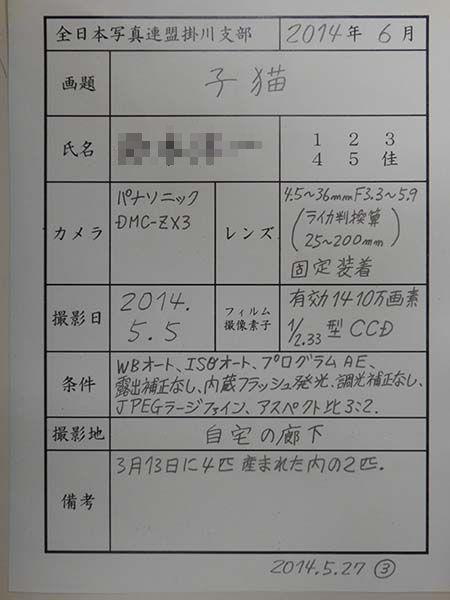 全日本写真連盟掛川支部 2014年 6月
画題 子猫
氏名 1 2 3
4 5 佳
カメラ パナソニック
DMC-ZX3
レンズ 4.5~36mm F3.3~5.9
(ライカ判換算
25~200mm)
固定装着
撮影日 2014.
5.5
フィルム
撮像素子
有効1410万画素
1/2.33型CCD
条件 WBオート、ISOオート、プログラムAE、
露出補正なし、内蔵フラッシュ発光、調光補正なし、
JPEGラージファイン、アスペクト比3:2.
撮影地 自宅の廊下
備考 3月13日に4匹産まれた内の2匹.
2014.5.27 ③